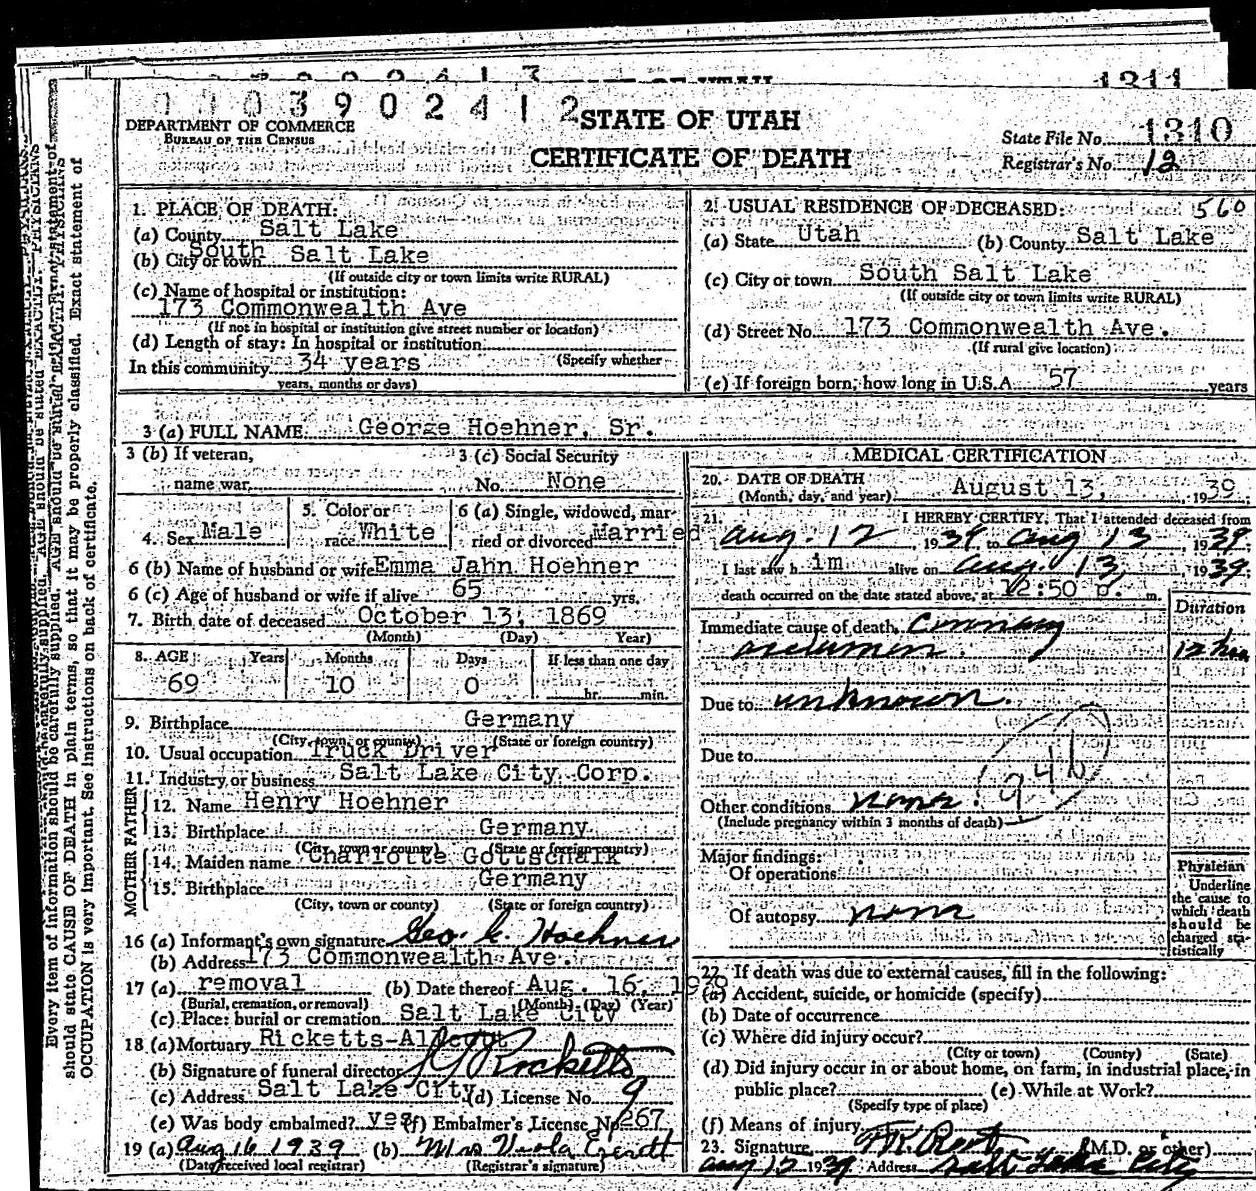 1311
0 0 0 3 9 0 2 4 1 2
DEPARTMENT OF COMMERCE
BUREAU OF THE CENSUS
STATE OF UTAH
CERTIFICATE OF DEATH
State File No. 1310
Registrar's No. 12
1. PLACE OF DEATH:
(a) County Salt Lake
(b) City or town South Salt Lake
(If outside city or town limits write RURAL)
(c) Name of hospital or institution:
173 Commonwealth Ave
(If not in hospital or institution give street number or location)
(d) Length of stay: In hospital or institution
(Specify whether
In this community 34 years
years, months or days)
2. USUAL RESIDENCE OF DECEASED: 560
(a) State Utah (b) County Salt Lake
(c) City or town South Salt Lake
(If outside city or town limits write RURAL)
(d) Street No. 173 Commonwealth Ave.
(If rural give location)
(e) If foreign born, how long in U.S.A. 57 years
3 (a) FULL NAME George Hoehner, Sr.
3 (b) If veteran,
name war
3 (c) Social Security
No. None
4. Sex Male
5. Color or
race White
6 (a) Single, widowed, mar-
ried or divorced Married
6 (b) Name of husband or wife Emma Jahn Hoehner
6 (c) Age of husband or wife if alive 65 yrs.
7. Birth date of deceased October 13, 1869
(Month) (Day) Year)
8. AGE Years Months Days If less than one day
69 10 0 hr. min.
9. Birthplace Germany
(City, town, or county) (State or foreign country)
10. Usual occupation Truck Driver
11. Industry or business Salt Lake City Corp.
FATHER
12. Name Henry Hoehner
13. Birthplace Germany
(City, town or county) (State or foreign country)
MOTHER
14. Maiden name Charlotte Gottschalk
15. Birthplace Germany
(City, town or county) (State or foreign country)
16 (a) Informant's own signature Geo. C. Hoehner
(b) Address 173 Commonwealth Ave.
17 (a) removal (b) Date thereof Aug. 16, 1939
(Burial, cremation, or removal) (Month) (Day) (Year)
(c) Place: burial or cremation Salt Lake City
18 (a) Mortuary Ricketts-
(b) Signature of funeral director Ricketts
(c) Address Salt Lake City (d) License No. 9
(e) Was body embalmed? yes (f) Embalmer's License No. 267
19 (a) Aug 16 1939 (b) Mrs Viola Everett
(Date received local registrar) (Registrar's signature)
MEDICAL CERTIFICATION
20. DATE OF DEATH
(Month, day, and year) August 13, 1939
21. I HEREBY CERTIFY, That I attended deceased from
Aug. 12, 1939 to Aug 13, 1939.
I last saw h im alive on Aug. 13, 1939.
death occurred on the date stated above, at 12:50 P. m.
Duration
Immediate cause of death Coronary
occlusion. 12 hrs
Due to unknown.
Due to
94b
Other conditions none
(Include pregnancy within 3 months of death)
Major findings:
Of operations
Of autopsy none
Physician
Underline
the cause to
which death
should be
charged sta-
tistically
22. If death was due to external causes, fill in the following:
(a) Accident, suicide, or homicide (specify)
(b) Date of occurrence
(c) Where did injury occur?
(City or town) (County) (State)
(d) Did injury occur in or about home, on farm, in industrial place, in
public place? (e) While at Work?
(Specify type of place)
(f) Means of injury
23. Signature (M.D. or other)
1939 Address Salt Lake City
Every item of information should be carefully supplied. AGE should be stated EXACTLY. PHYSICIANS
should state CAUSE OF DEATH in plain terms, so that it may be properly classified. Exact statement of
OCCUPATION is very important. See instructions on back of certificate.